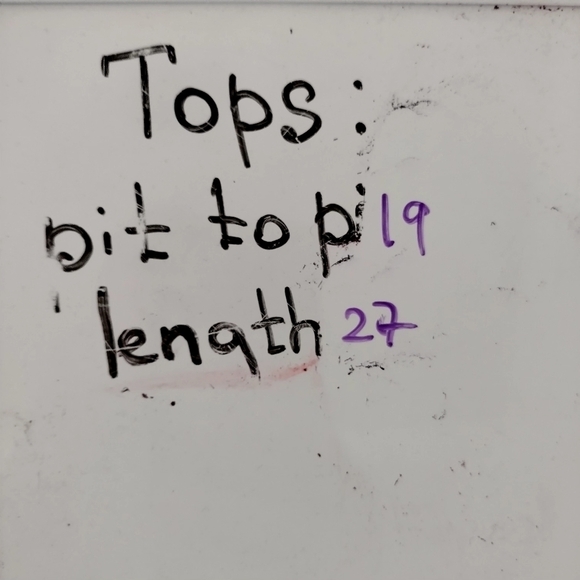 Tops:
pit to pi 19
length 27